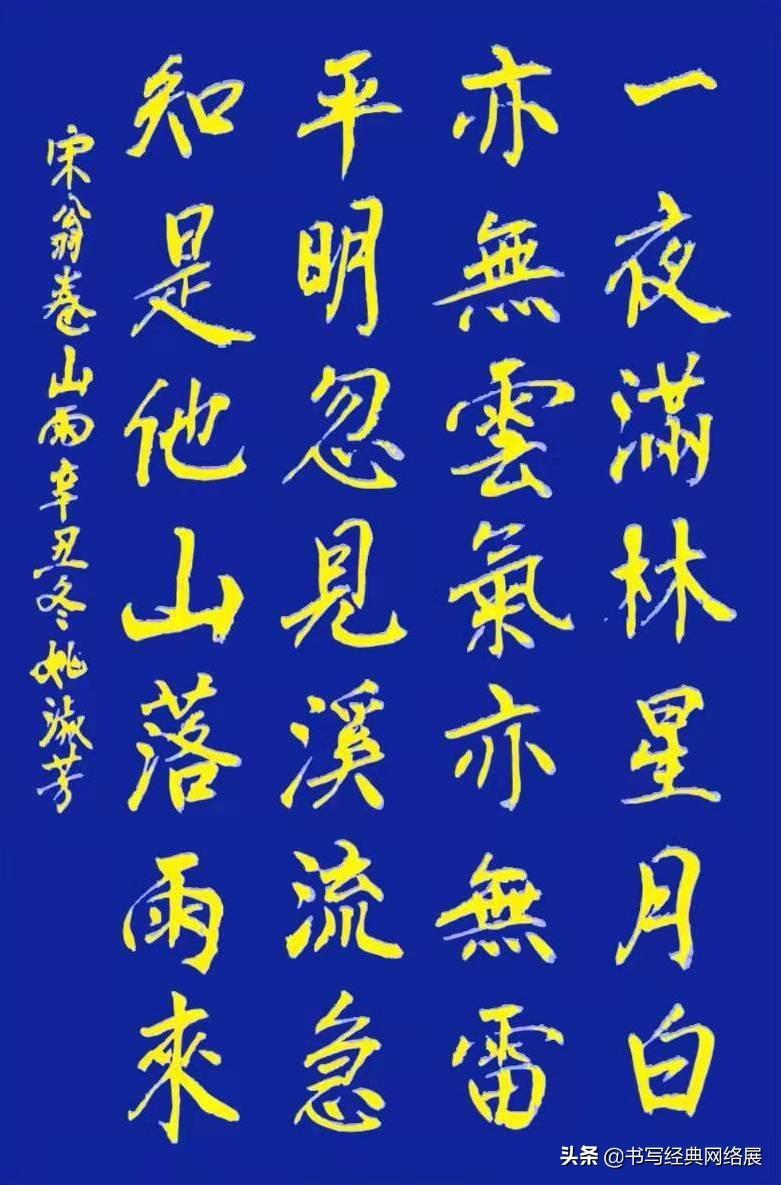 一夜滿林星月白
亦無雲氣亦無雷
平明忽見溪流急
知是他山落雨來
宋翁卷山雨辛丑冬姚淑芳
头条 @书写经典网络展